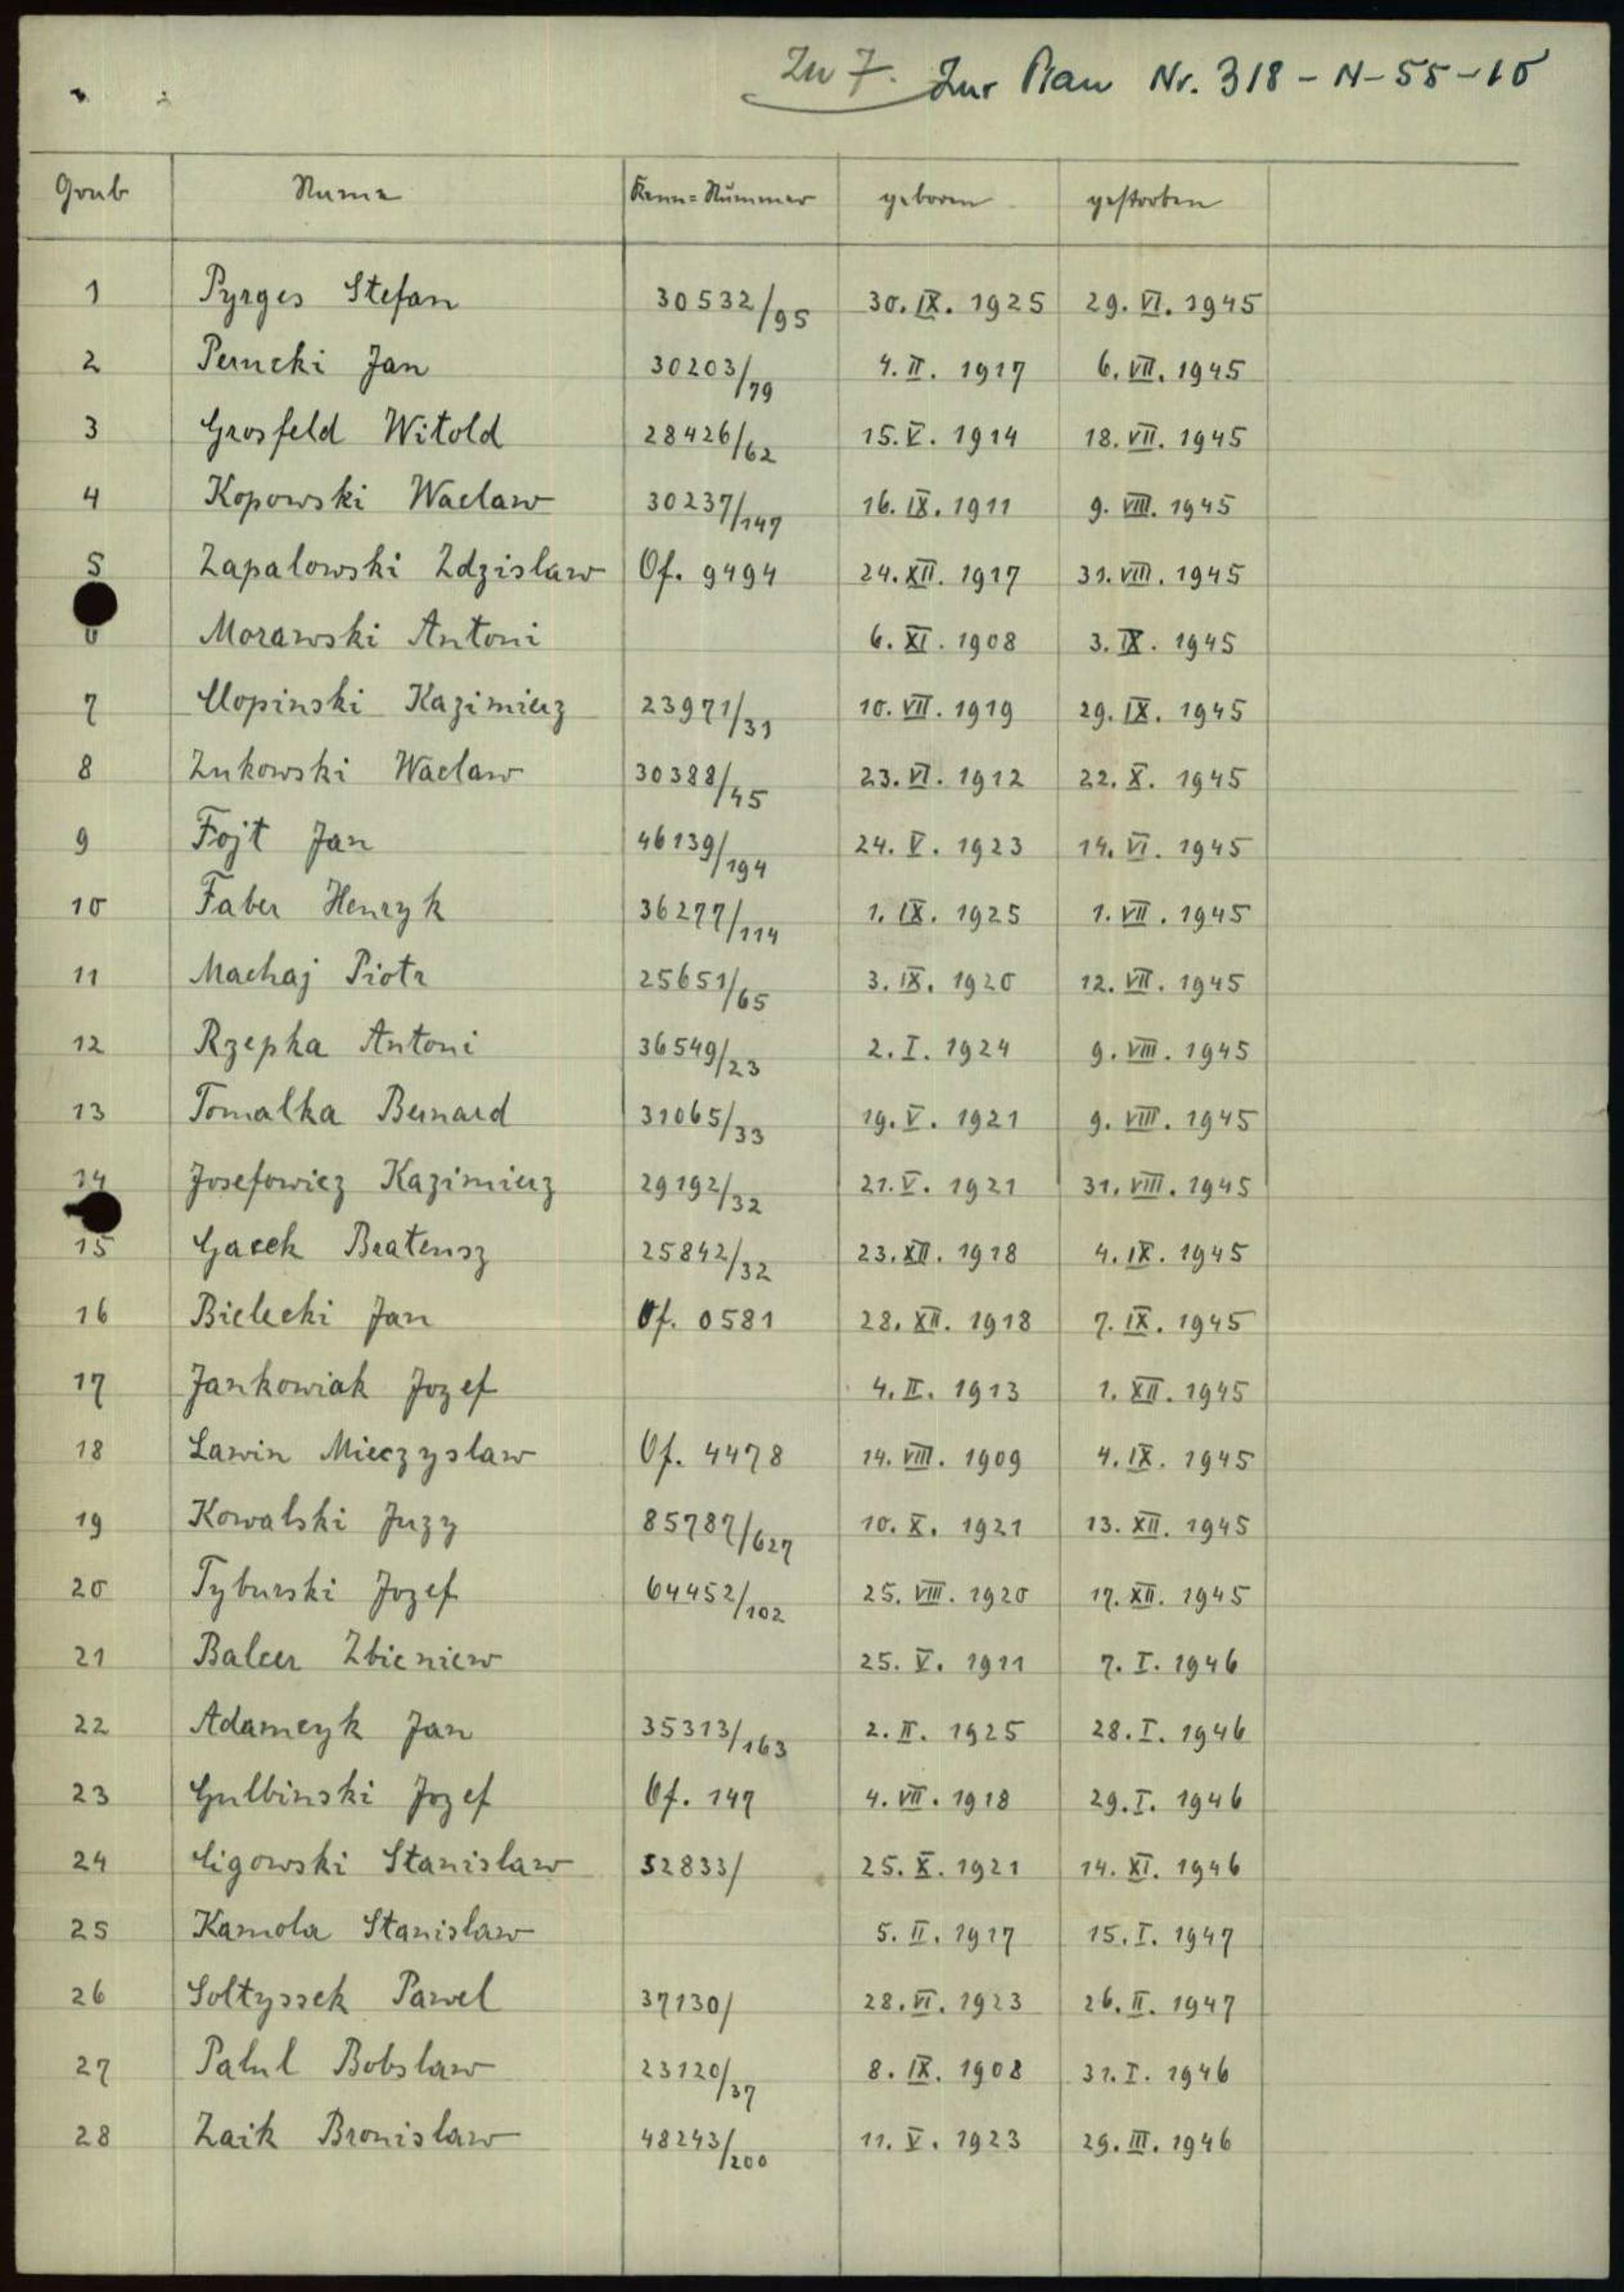 Zu 7. Zur Plan Nr. 318-N-55-10
Grab Name Kenn=Nummer geboren gestorben
1 Pyrges Stefan 30532/95 30. IX. 1925 29. VI. 1945
2 Perucki Jan 30203/79 4. II. 1917 6. VII. 1945
3 Grosfeld Witold 28426/62 15. V. 1914 18. VII. 1945
4 Kopowski Waclaw 30237/147 16. IX. 1911 9. VIII. 1945
5 Zapalowski Zdzislaw Of. 9494 24. XII. 1917 31. VIII. 1945
Morawski Antoni 6. XI. 1908 3. IX. 1945
7 Klopinski Kazimierz 23971/31 10. VII. 1919 29. IX. 1945
8 Zukowski Waclaw 30388/45 23. VI. 1912 22. X. 1945
9 Fojt Jan 46139/194 24. V. 1923 14. VI. 1945
10 Faber Henryk 36277/114 1. IX. 1925 1. VII. 1945
11 Machaj Piotr 25651/65 3. IX. 1920 12. VII. 1945
12 Rzepka Antoni 36549/23 2. I. 1924 9. VIII. 1945
13 Tomalka Bernard 31065/33 19. V. 1921 9. VIII. 1945
14 Josefowicz Kazimierz 29192/32 21. V. 1921 31. VIII. 1945
15 Gacek Bratensz 25842/32 23. XII. 1918 4. IX. 1945
16 Bielecki Jan Of. 0581 28. XII. 1918 7. IX. 1945
17 Jankowiak Jozef 4. II. 1913 1. XII. 1945
18 Lawin Mieczyslaw Of. 4478 14. VIII. 1909 4. IX. 1945
19 Kowalski Jerzy 85787/627 10. X. 1921 13. XII. 1945
20 Tyburski Jozef 64452/102 25. VIII. 1920 17. XII. 1945
21 Balcer Zbieniew 25. V. 1911 7. I. 1946
22 Adamczyk Jan 35313/163 2. II. 1925 28. I. 1946
23 Gulbinski Jozef Of. 147 4. VII. 1918 29. I. 1946
24 Ligowski Stanislaw 52833/ 25. X. 1921 14. XI. 1946
25 Kamola Stanislaw 5. II. 1917 15. I. 1947
26 Soltyssek Pawel 37130/ 28. VI. 1923 26. II. 1947
27 Palul Bobslaw 23120/37 8. IX. 1908 31. I. 1946
28 Zaik Bronislaw 48243/200 11. V. 1923 29. III. 1946